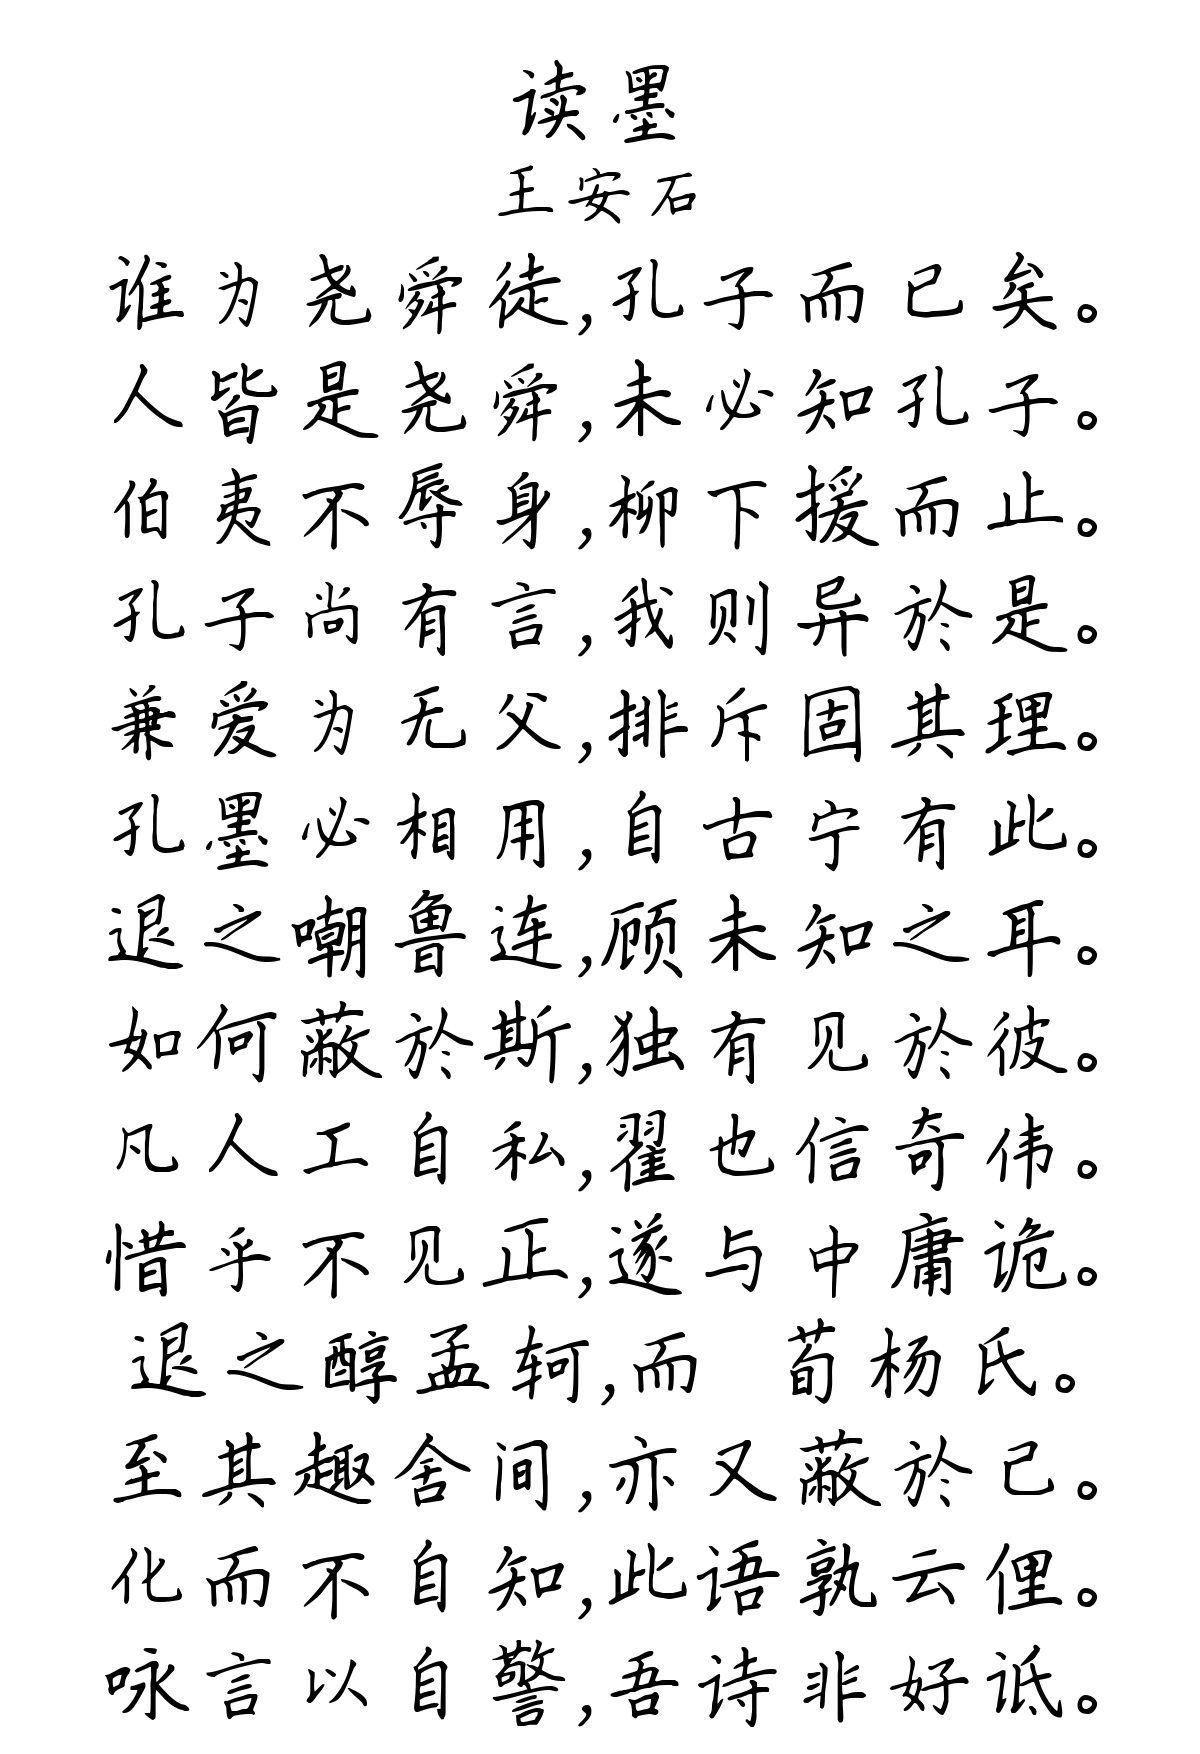 读墨
王安石
谁为尧舜徒,孔子而已矣。
人皆是尧舜,未必知孔子。
伯夷不辱身,柳下援而止。
孔子尚有言,我则异於是。
兼爱为无父,排斥固其理。
孔墨必相用,自古宁有此。
退之嘲鲁连,顾未知之耳。
如何蔽於斯,独有见於彼。
凡人工自私,翟也信奇伟。
惜乎不见正,遂与中庸诡。
退之醇孟轲,而 荀杨氏。
至其趣舍间,亦又蔽於己。
化而不自知,此语孰云俚。
咏言以自警,吾诗非好诋。